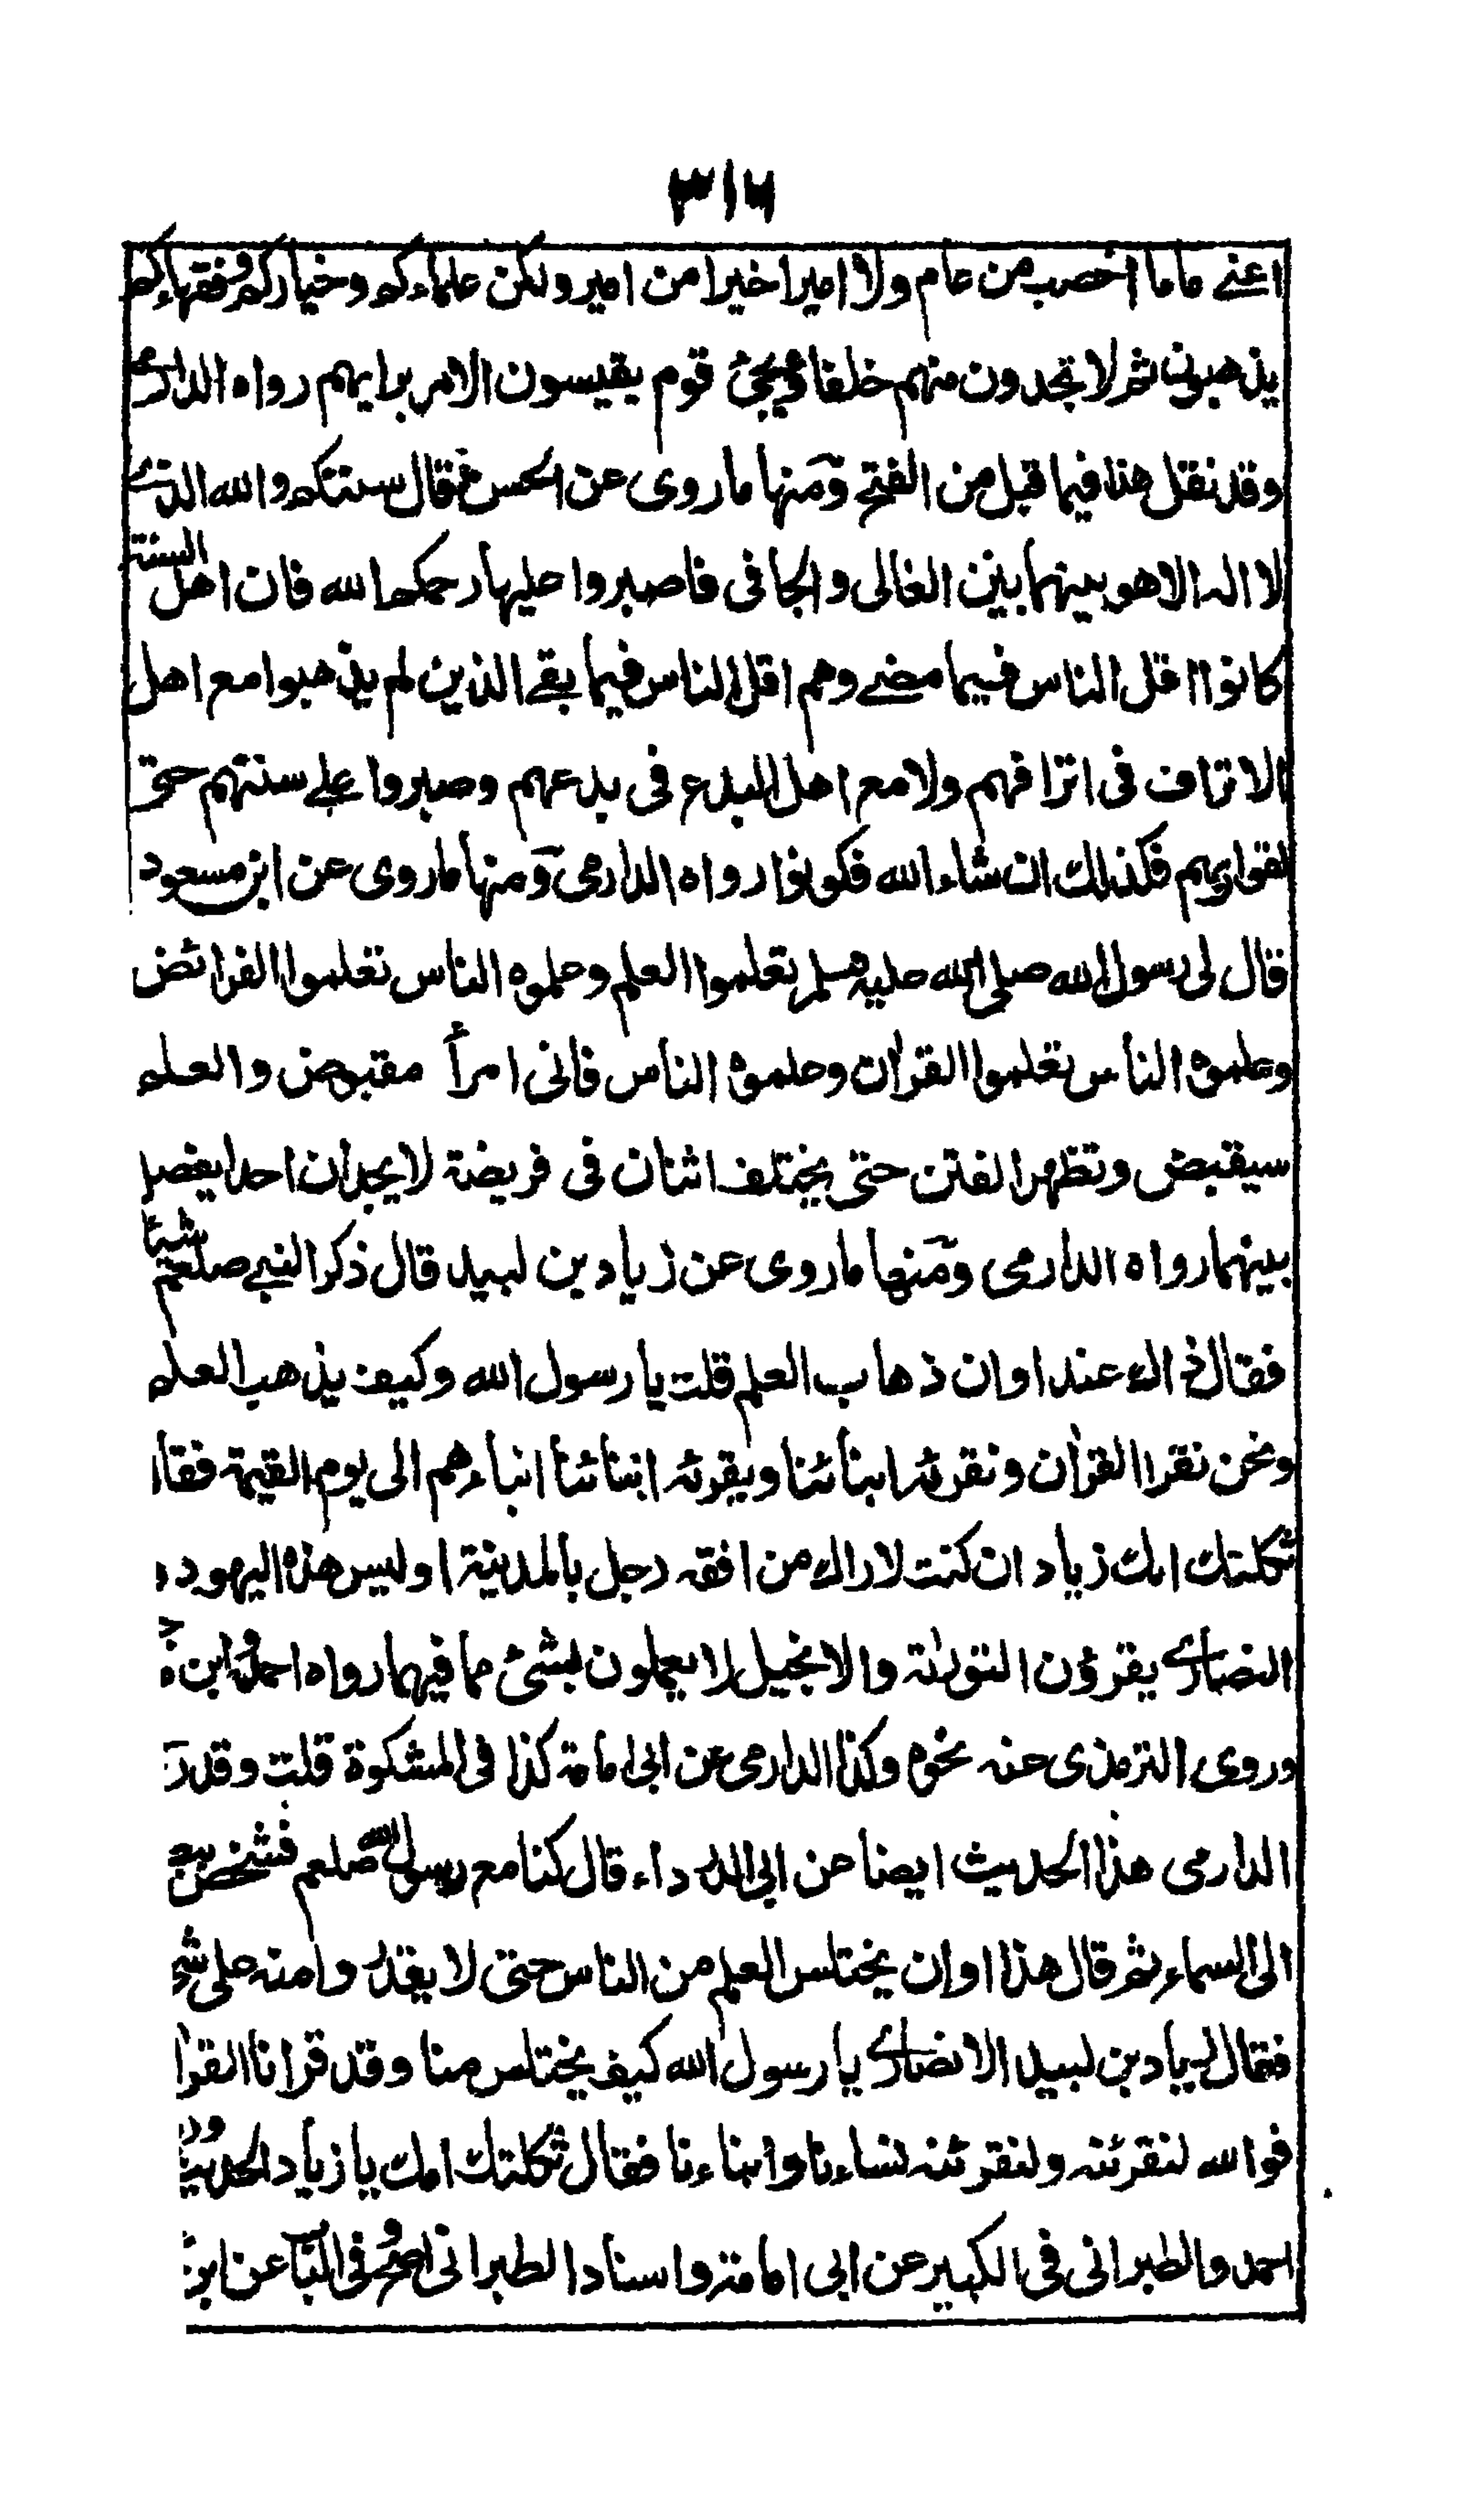 ٣١٦
اعنے عاما اخصب من عام ولا اميرا خيرا من امير ولكن علماءكم وخياركم وفقهاءكم
يذهبون ثم لا تجدون منهم خلفا ويجئ قوم يقيسون الامر برايهم رواه الدارمى
وقد نقل هذا فيما قبل من الفتح ومنها ما روى عن الحسن قال سنتكم والله الذى
لا اله الا هو بينهما بين الغالى والجافى فاصبروا عليها رحمكم الله فان اهل السنة
كانوا اقل الناس فيما مضے وهم اقل الناس فيما بقے الذين لم يذهبوا مع اهل
الاتراف فى اترافهم ولا مع اهل البدع فى بدعهم وصبروا على سنتهم حتى
لقوا ربهم فكذلك ان شاء الله فكونوا رواه الدارمى ومنها ما روى عن ابن مسعود
قال لى رسول الله صلى الله عليه وسلم تعلموا العلم وعلموه الناس تعلموا الفرائض
وعلموه الناس تعلموا القرأن وعلموه الناس فانى امرأ مقبوض والعلم
سيقبض وتظهر الفتن حتى يختلف اثنان فى فريضة لا يجدان احدا يفصل
بينهما رواه الدارمى ومنها ما روى عن زياد بن لبيد قال ذكر النبے صلعم شيئا
فقال ذاك عند اوان ذهاب العلم قلت يا رسول الله وكيف يذهب العلم
ونحن نقرا القرأن ونقرئه ابنائنا ويقرئه ابنائنا ابناءهم الى يوم القيمة فقا
ثكلتك امك زياد ان كنت لاراك من افقه رجل بالمدينة اوليس هذه اليهود و
النصارى يقرؤن التورٰىة والانجيل لا يعملون بشئ مما فيهما رواه احمد وابن
وروى الترمذى عنه نحوه وكذا الدارمى عن ابى امامة كذا فى المشكوة قلت وقد
الدارمى هذا الحديث ايضا عن ابى الدرداء قال كنا مع رسول الله صلعم فشخص
الى السماء ثم قال هذا اوان يختلس العلم من الناس حتى لا يقدروا منه على
فقال زياد بن لبيد الانصارى يا رسول الله كيف يختلس منا وقد قرانا القرا
فوالله لنقرئنه ولنقرئنه نساءنا وابناءنا فقال ثكلتك امك يا زياد الحديث
احمد والطبرانى فى الكبير عن ابى امامة واسناد الطبرانى اصح وفى الباب عن